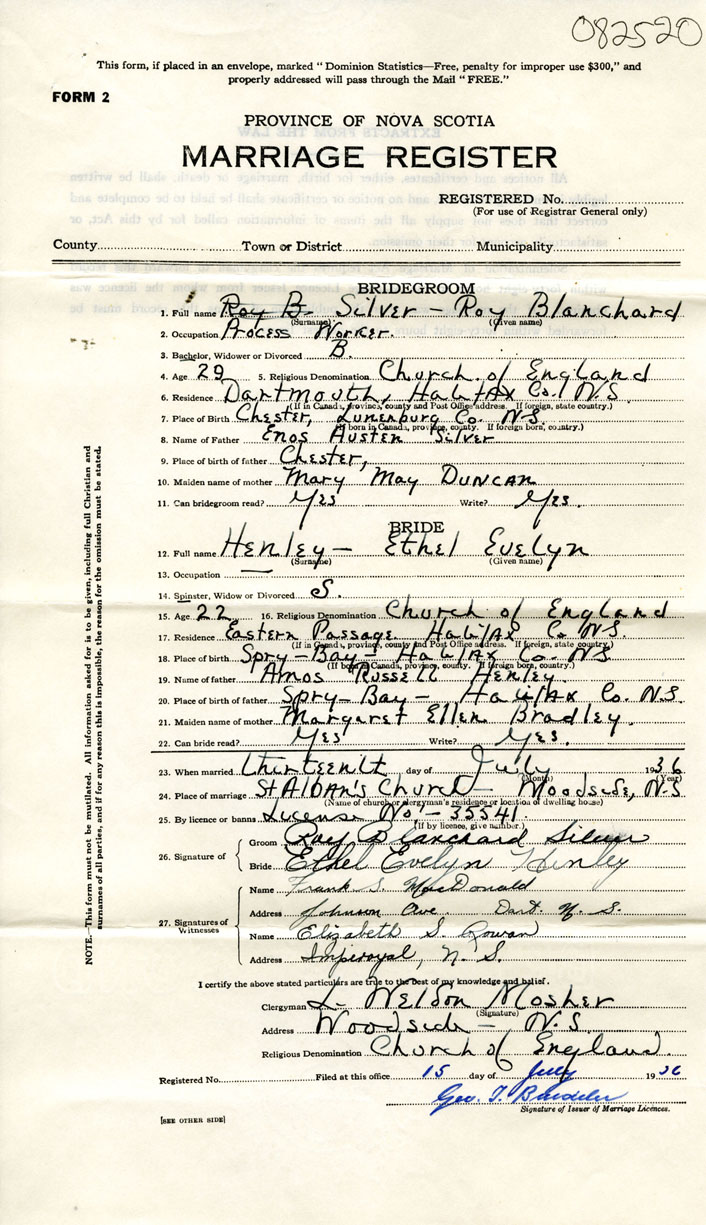 082520
This form, if placed in an envelope, marked "Dominion Statistics—Free, penalty for improper use $300," and
properly addressed will pass through the Mail "FREE."
FORM 2
PROVINCE OF NOVA SCOTIA
MARRIAGE REGISTER
REGISTERED No.
(For use of Registrar General only)
County Town or District Municipality
BRIDEGROOM
1. Full name Roy B. Silver - Roy Blanchard
(Surname) (Given name)
2. Occupation Process Worker.
3. Bachelor, Widower or Divorced B.
4. Age 29 5. Religious Denomination Church of England
6. Residence Dartmouth, Halifax Co. N.S.
(If in Canada, province, county and Post Office address. If foreign, state country.)
7. Place of Birth Chester, Lunenburg Co. N.S.
(If born in Canada, province, county. If foreign born, country.)
8. Name of Father Enos Austen Silver
9. Place of birth of father Chester,
10. Maiden name of mother Mary May Duncan
11. Can bridegroom read? Yes Write? Yes.
BRIDE
12. Full name Henley - Ethel Evelyn
(Surname) (Given name)
13. Occupation —
14. Spinster, Widow or Divorced S.
15. Age 22 16. Religious Denomination Church of England
17. Residence Eastern Passage Halifax Co N.S.
(If in Canada, province, county and Post Office address. If foreign, state country.)
18. Place of birth Spry-Bay - Halifax Co. N.S
(If born in Canada, province, county. If foreign born, country.)
19. Name of father Amos Russell Henley.
20. Place of birth of father Spry-Bay - Halifax Co. N.S.
21. Maiden name of mother Margaret Ellen Bradley.
22. Can bride read? Yes Write? Yes.
23. When married thirteenth day of July 1936
(Month) (Year)
24. Place of marriage St Alban's Church - Woodside, N.S
(Name of church or clergyman's residence or location of dwelling house)
25. By licence or banns License No - 35541.
(If by licence, give number)
26. Signature of
Groom Roy Blanchard Silver
Bride Ethel Evelyn Henley
27. Signatures of Witnesses
Name Frank S. MacDonald
Address Johnson Ave. Dart. N.S.
Name Elizabeth S. Rowan
Address Imperoyal, N.S.
I certify the above stated particulars are true to the best of my knowledge and belief.
Clergyman L. Weldon Mosher
(Signature)
Address Woodside - N.S.
Religious Denomination Church of England.
Registered No. Filed at this office 15 day of July 1936
Geo. T.
Signature of Issuer of Marriage Licences.
[SEE OTHER SIDE]
NOTE.—This form must not be mutilated. All information asked for is to be given, including full Christian and
surnames of all parties, and if for any reason this is impossible, the reason for the omission must be stated.